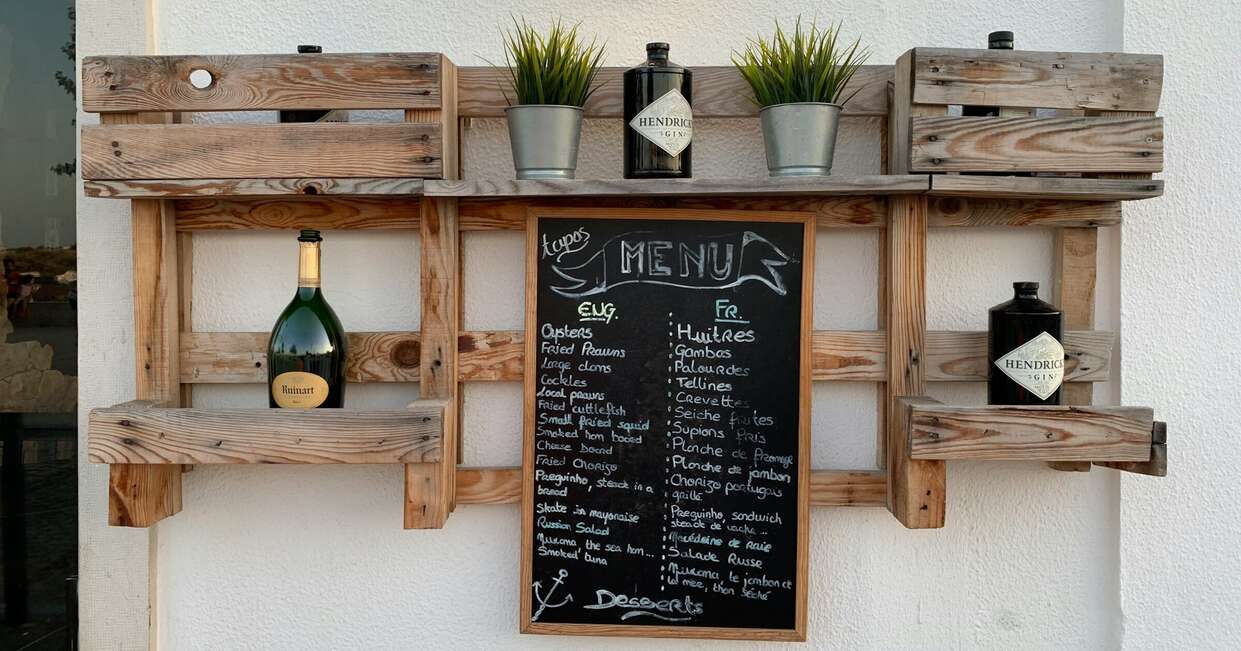 HENDRICK'S
GIN
Ruinart
HENDRICK'S
GIN
tapas
MENU
ENG.
Oysters
Fried Prawns
Large clams
Cockles
Local prawns
Fried cuttlefish
Small fried squid
Smoked ham board
Cheese Board
Fried Chorizo
Preguinho, steack in a
bread
Skate in mayonaise
Russian Salad
Muxama the sea ham...
Smoked tuna
Fr.
Huitres
Gambas
Palourdes
Tellines
Crevettes
Seiche frites
Supions Fris
Planche de fromage
Planche de jambon
Chorizo portugais
grillé
Preguinho, sandwich
steack de vache...
Macédoine de raie
Salade Russe
Muxama, le jambon de
la mer, thon séché
Desserts